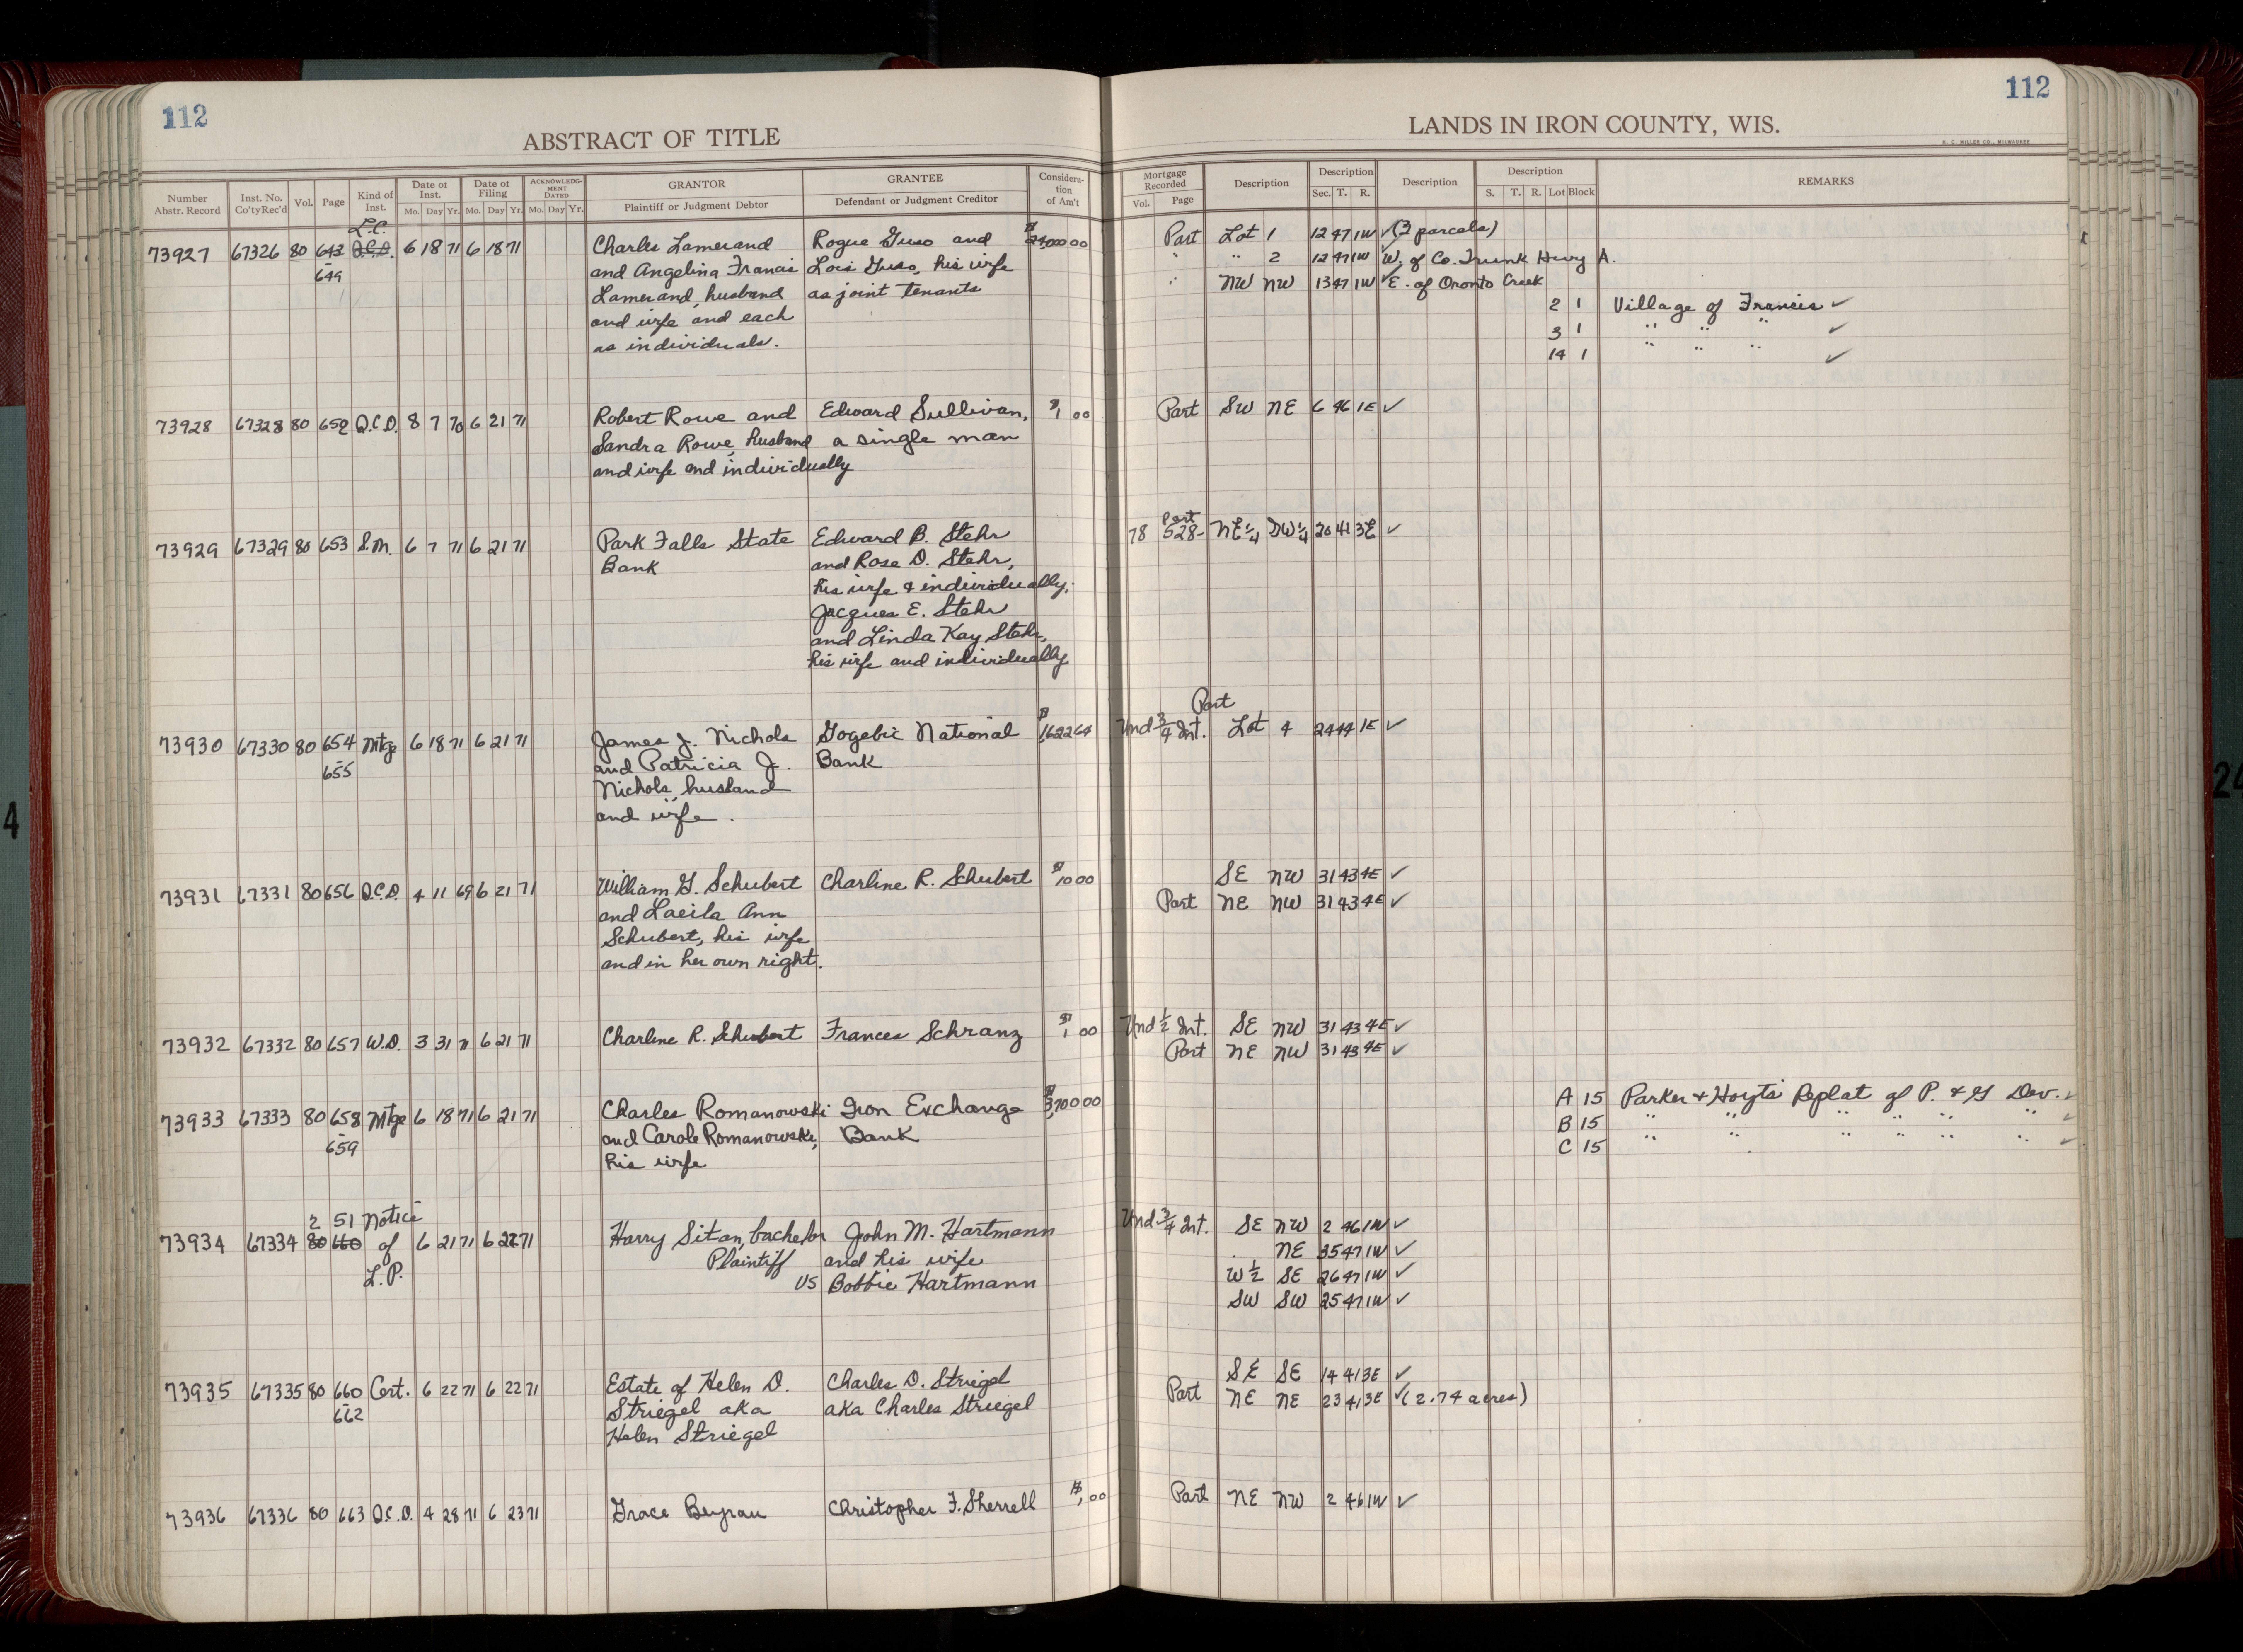 112
112
ABSTRACT OF TITLE
LANDS IN IRON COUNTY, WIS.
H. C. MILLER CO., MILWAUKEE
Number Abstr. Record | Inst. No. Co'ty Rec'd | Vol. | Page | Kind of Inst. | Date of Inst. Mo. Day Yr. | Date of Filing Mo. Day Yr. | ACKNOWLEDGMENT DATED Mo. Day Yr. | GRANTOR Plaintiff or Judgment Debtor | GRANTEE Defendant or Judgment Creditor | Consideration of Am't | Mortgage Recorded Vol. Page | Description | Description Sec. T. R. | Description | Description S. T. R. Lot Block | REMARKS
L.C.
73927 67326 80 643 Q.C.D. 6 18 71 6 18 71 Charles Lamerand Rogue Guso and $24,000 00 Part Lot 1 12 47 1W ✓ (2 parcels)
- 649 and Angelina Francis Lois Guso, his wife " " 2 12 47 1W W. of Co. Trunk Hwy A.
Lamerand, husband as joint tenants " NW NW 13 47 1W ✓ E. of Oronto Creek
and wife and each 2 1 Village of Francis ✓
as individuals. 3 1 " " " ✓
14 1 " " " ✓
73928 67328 80 652 Q.C.D. 8 7 70 6 21 71 Robert Rowe and Edward Sullivan, $1 00 Part SW NE 6 46 1E ✓
Sandra Rowe, husband a single man
and wife and individually
Part
73929 67329 80 653 S.M. 6 7 71 6 21 71 Park Falls State Edward B. Stehr 78 528- NE¼ SW¼ 20 41 3E ✓
Bank and Rose D. Stehr,
his wife & individually;
Jacques E. Stehr
and Linda Kay Stehr,
his wife and individually
Part
73930 67330 80 654 Mtge 6 18 71 6 21 71 James J. Nichols Gogebic National $1,622 64 Und ¾ Int. Lot 4 24 44 1E ✓
- 655 and Patricia J. Bank
Nichols, husband
and wife.
73931 67331 80 656 Q.C.D. 4 11 69 6 21 71 William G. Schubert Charline R. Schubert $10 00 SE NW 31 43 4E ✓
and Laeila Ann Part NE NW 31 43 4E ✓
Schubert, his wife
and in her own right.
73932 67332 80 657 W.D. 3 31 71 6 21 71 Charline R. Schubert Frances Schranz $1 00 Und ½ Int. SE NW 31 43 4E ✓
Part NE NW 31 43 4E ✓
73933 67333 80 658 Mtge 6 18 71 6 21 71 Charles Romanowski Iron Exchange $3,700 00 A 15 Parker & Hoyt's Replat of P. & G Dev. ✓
- 659 and Carole Romanowski, Bank B 15 " " " " " " ✓
his wife C 15 " " " " " " ✓
2 51 Notice
73934 67334 80 660 of 6 21 71 6 22 71 Harry Sitan, bachelor John M. Hartmann Und ¾ Int. SE NW 2 46 1W ✓
L.P. Plaintiff and his wife NE 35 47 1W ✓
vs Bobbie Hartmann W½ SE 26 47 1W ✓
SW SW 25 47 1W ✓
SE SE 14 41 3E ✓
73935 67335 80 660 Cert. 6 22 71 6 22 71 Estate of Helen D. Charles D. Striegel Part NE NE 23 41 3E ✓ (2.74 acres)
- 662 Striegel aka aka Charles Striegel
Helen Striegel
73936 67336 80 663 Q.C.D. 4 28 71 6 23 71 Grace Christopher F. Sherrell $1 00 Part NE NW 2 46 1W ✓
4
24